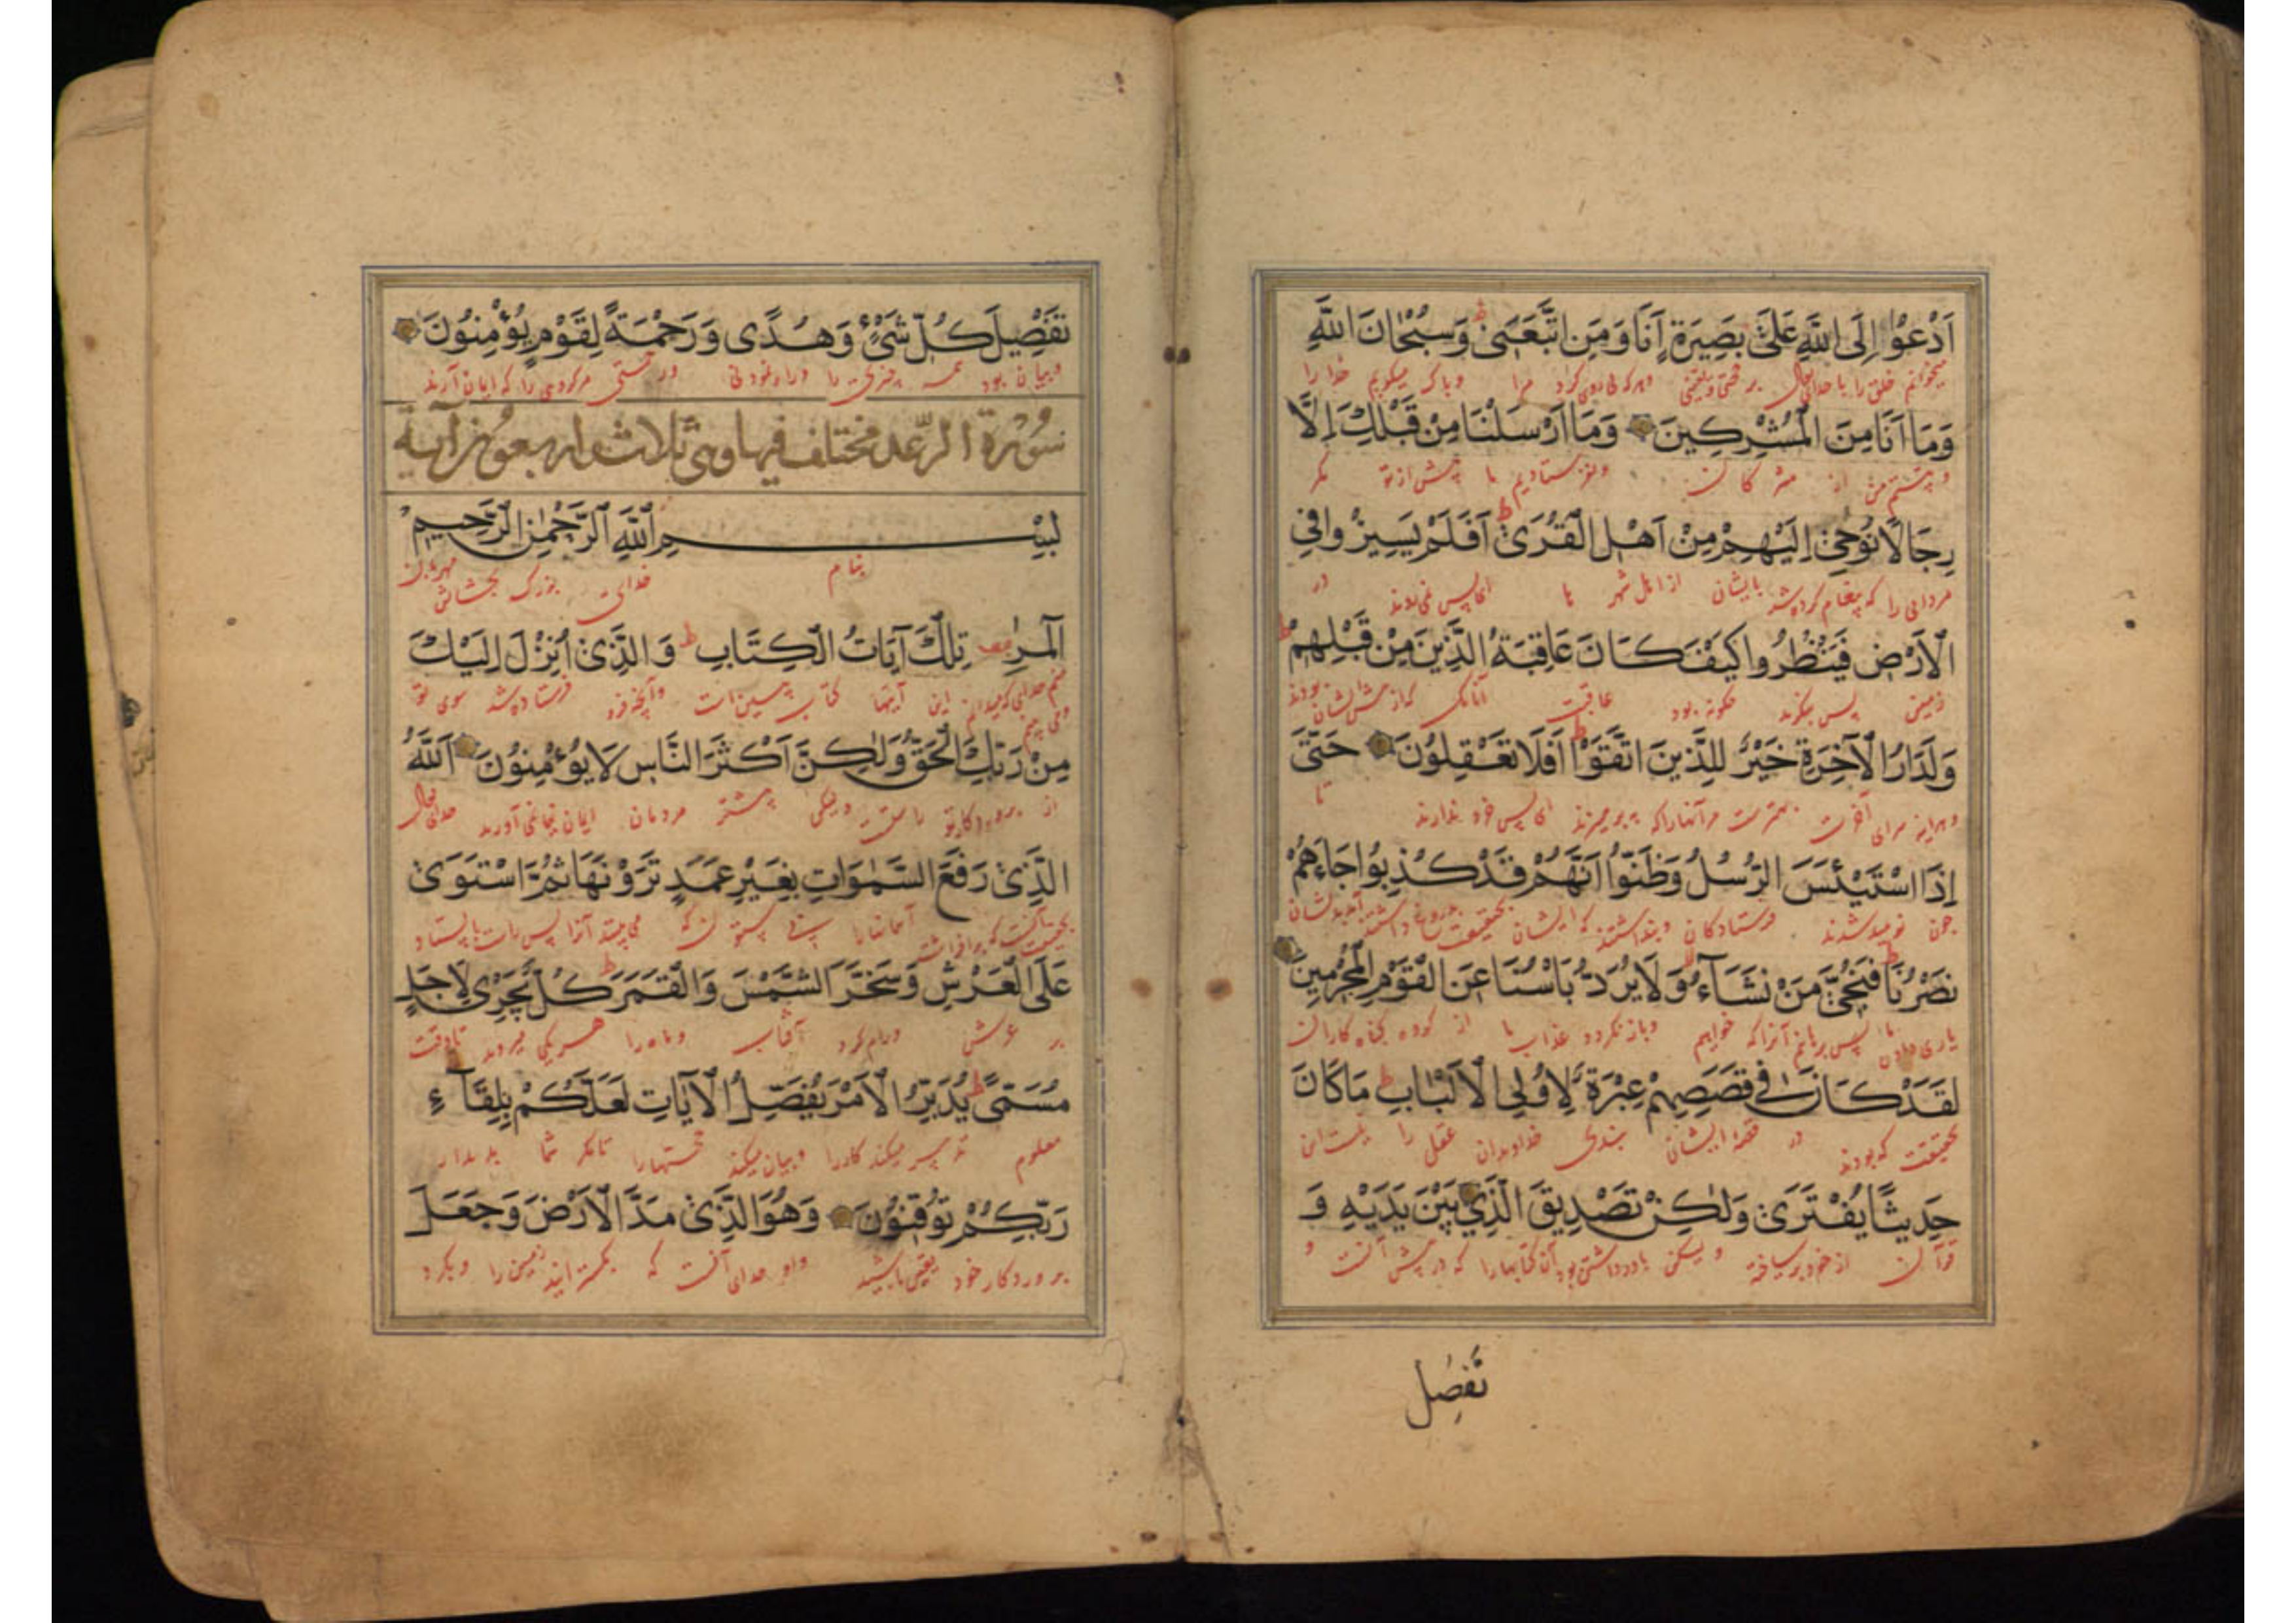 اَدْعُوْا اِلَى اللّٰهِ عَلٰى بَصِيْرَةٍ اَنَا وَمَنِ اتَّبَعَنِىْ ط وَسُبْحَانَ اللّٰهِ
میخوانم خلق را با خدای تعالی بر و هر که پی روی کرد مرا و پاک میگویم خدا را
وَمَا اَنَا مِنَ الْمُشْرِكِيْنَ وَمَا اَرْسَلْنَا مِنْ قَبْلِكَ اِلَّا
و نیستم من از مشرکان و نفرستادیم ما پیش از تو مگر
رِجَالًا نُوْحِىْ اِلَيْهِمْ مِنْ اَهْلِ الْقُرٰى ط اَفَلَمْ يَسِيْرُوا فِى
مردانی را که پیغام کرده شد بایشان از اهل شهر ها ای پس نمی روند در
الْاَرْضِ فَيَنْظُرُوا كَيْفَ كَانَ عَاقِبَةُ الَّذِيْنَ مِنْ قَبْلِهِمْ ط
زمین پس بنگرند چگونه بود عاقبت آنانکه که از پیش ایشان بودند
وَلَدَارُ الْآخِرَةِ خَيْرٌ لِلَّذِيْنَ اتَّقَوْا ط اَفَلَا تَعْقِلُوْنَ حَتّٰى
و هر اینه سرای آخرت بهترست مر آنها را که پرهیزند ای پس خرد ندارند تا
اِذَا اسْتَيْئَسَ الرُّسُلُ وَظَنُّوْا اَنَّهُمْ قَدْ كُذِبُوْا جَاءَهُمْ
چون نومید شدند فرستادگان و پنداشتند که ایشان بحقیقت
نَصْرُنَا فَنُجِّىَ مَنْ نَشَآءُ ط وَلَا يُرَدُّ بَاْسُنَا عَنِ الْقَوْمِ الْمُجْرِمِيْنَ
یاری دادن ما پس برهانم آنرا که خواهیم و باز نگردد عذاب ما از گروه گناه کاران
لَقَدْ كَانَ فِى قَصَصِهِمْ عِبْرَةٌ لِاُولِى الْاَلْبَابِ ط مَا كَانَ
بحقیقت که بودند در قصه ایشان پندی خداوندان عقل را نیست این
حَدِيْثًا يُفْتَرٰى وَلٰكِنْ تَصْدِيْقَ الَّذِىْ بَيْنَ يَدَيْهِ وَ
قرآن از خود بر ساخته و لیکن آن کتابها را که در پیش آنست و
تَفْصِيل
تَفْصِيْلَ كُلِّ شَىْءٍ وَهُدًى وَرَحْمَةً لِقَوْمٍ يُؤْمِنُوْنَ
و بیان بود همه چیزی را و راه نمودنی و رحمتی مر گروهی را که ایمان آرند
سُوْرَة الرَّعد مختلف فیها وهى ثلاث واربعون آية
بِسْمِ اللّٰهِ الرَّحْمٰنِ الرَّحِيْمِ
بنام خدای بزرگ بخشایش مهربان
الٓمٓرٰ تِلْكَ آيَاتُ الْكِتَابِ ط وَالَّذِىْ اُنْزِلَ اِلَيْكَ
منم خدایی که میدانم این آیتها کتاب است و آنچه فرو فرستاده شد سوی تو
مِنْ رَبِّكَ الْحَقُّ وَلٰكِنَّ اَكْثَرَ النَّاسِ لَا يُؤْمِنُوْنَ اَللّٰهُ
از پروردگار تو راستست و لیکن بیشتر مردمان ایمان نمی آورند خدای تعالی
الَّذِىْ رَفَعَ السَّمٰوَاتِ بِغَيْرِ عَمَدٍ تَرَوْنَهَا ثُمَّ اسْتَوٰى
آنست که برافراشت آسمانها را بی ستون که می بینید آنرا پس راست بایستاد
عَلَى الْعَرْشِ وَسَخَّرَ الشَّمْسَ وَالْقَمَرَ ط كُلٌّ يَجْرِىْ لِاَجَلٍ
بر عرش و رام کرد آفتاب و ماه را هر یکی میرود تا وقت
مُسَمًّى ط يُدَبِّرُ الْاَمْرَ يُفَصِّلُ الْآيَاتِ لَعَلَّكُمْ بِلِقَآءِ
معلوم تدبیر میکند کار را و بیان میکند تا مگر شما بدیدار
رَبِّكُمْ تُوْقِنُوْنَ وَهُوَ الَّذِىْ مَدَّ الْاَرْضَ وَجَعَلَ
پروردگار خود یقین باشید و او خدای آنست که بگسترانید زمین را و بکرد